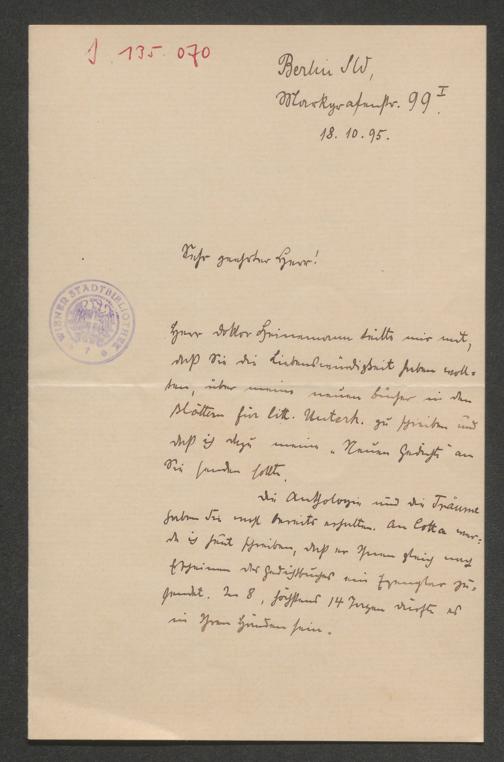 J. 135.070
Berlin SW,
Markgrafenstr. 99 I.
18. 10. 95.
Sehr geehrter Herr!
WIENER STADTBIBLIOTHEK
Herr Doktor Heinemann teilte mir mit,
daß Sie die Liebenswürdigkeit haben woll-
ten, über meine neuen Bücher in den
Blättern für litt. Unterh. zu schreiben und
daß ich dazu meine „Neuen Gedichte" an
Sie senden sollte.
Die Anthologie und die Träume
haben Sie wohl bereits erhalten. An Cotta wer-
de ich heut schreiben, daß er Ihnen gleich nach
Erscheinen des Gedichtbuches ein Exemplar zu-
sendet. In 8, höchstens 14 Tagen dürfte es
in Ihren Händen sein.